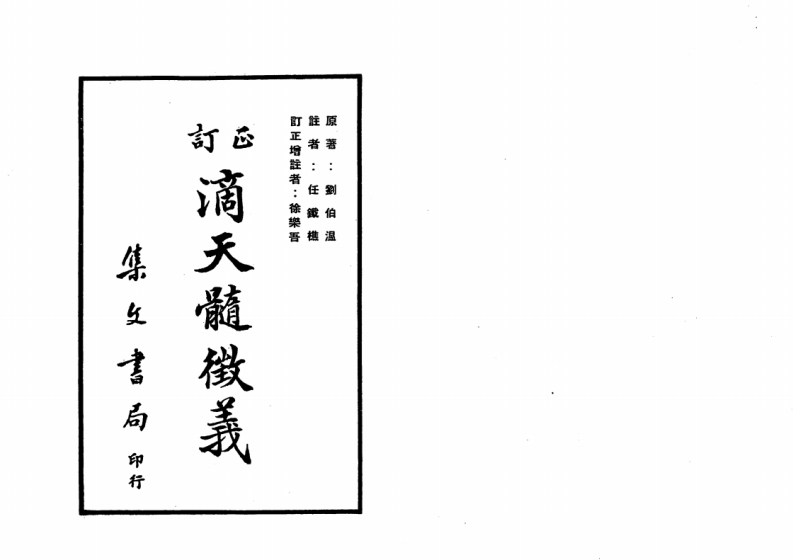 原著：劉伯溫
註者：任鐵樵
訂正增註者：徐樂吾
訂正
滴天髓徵義
集文書局印行